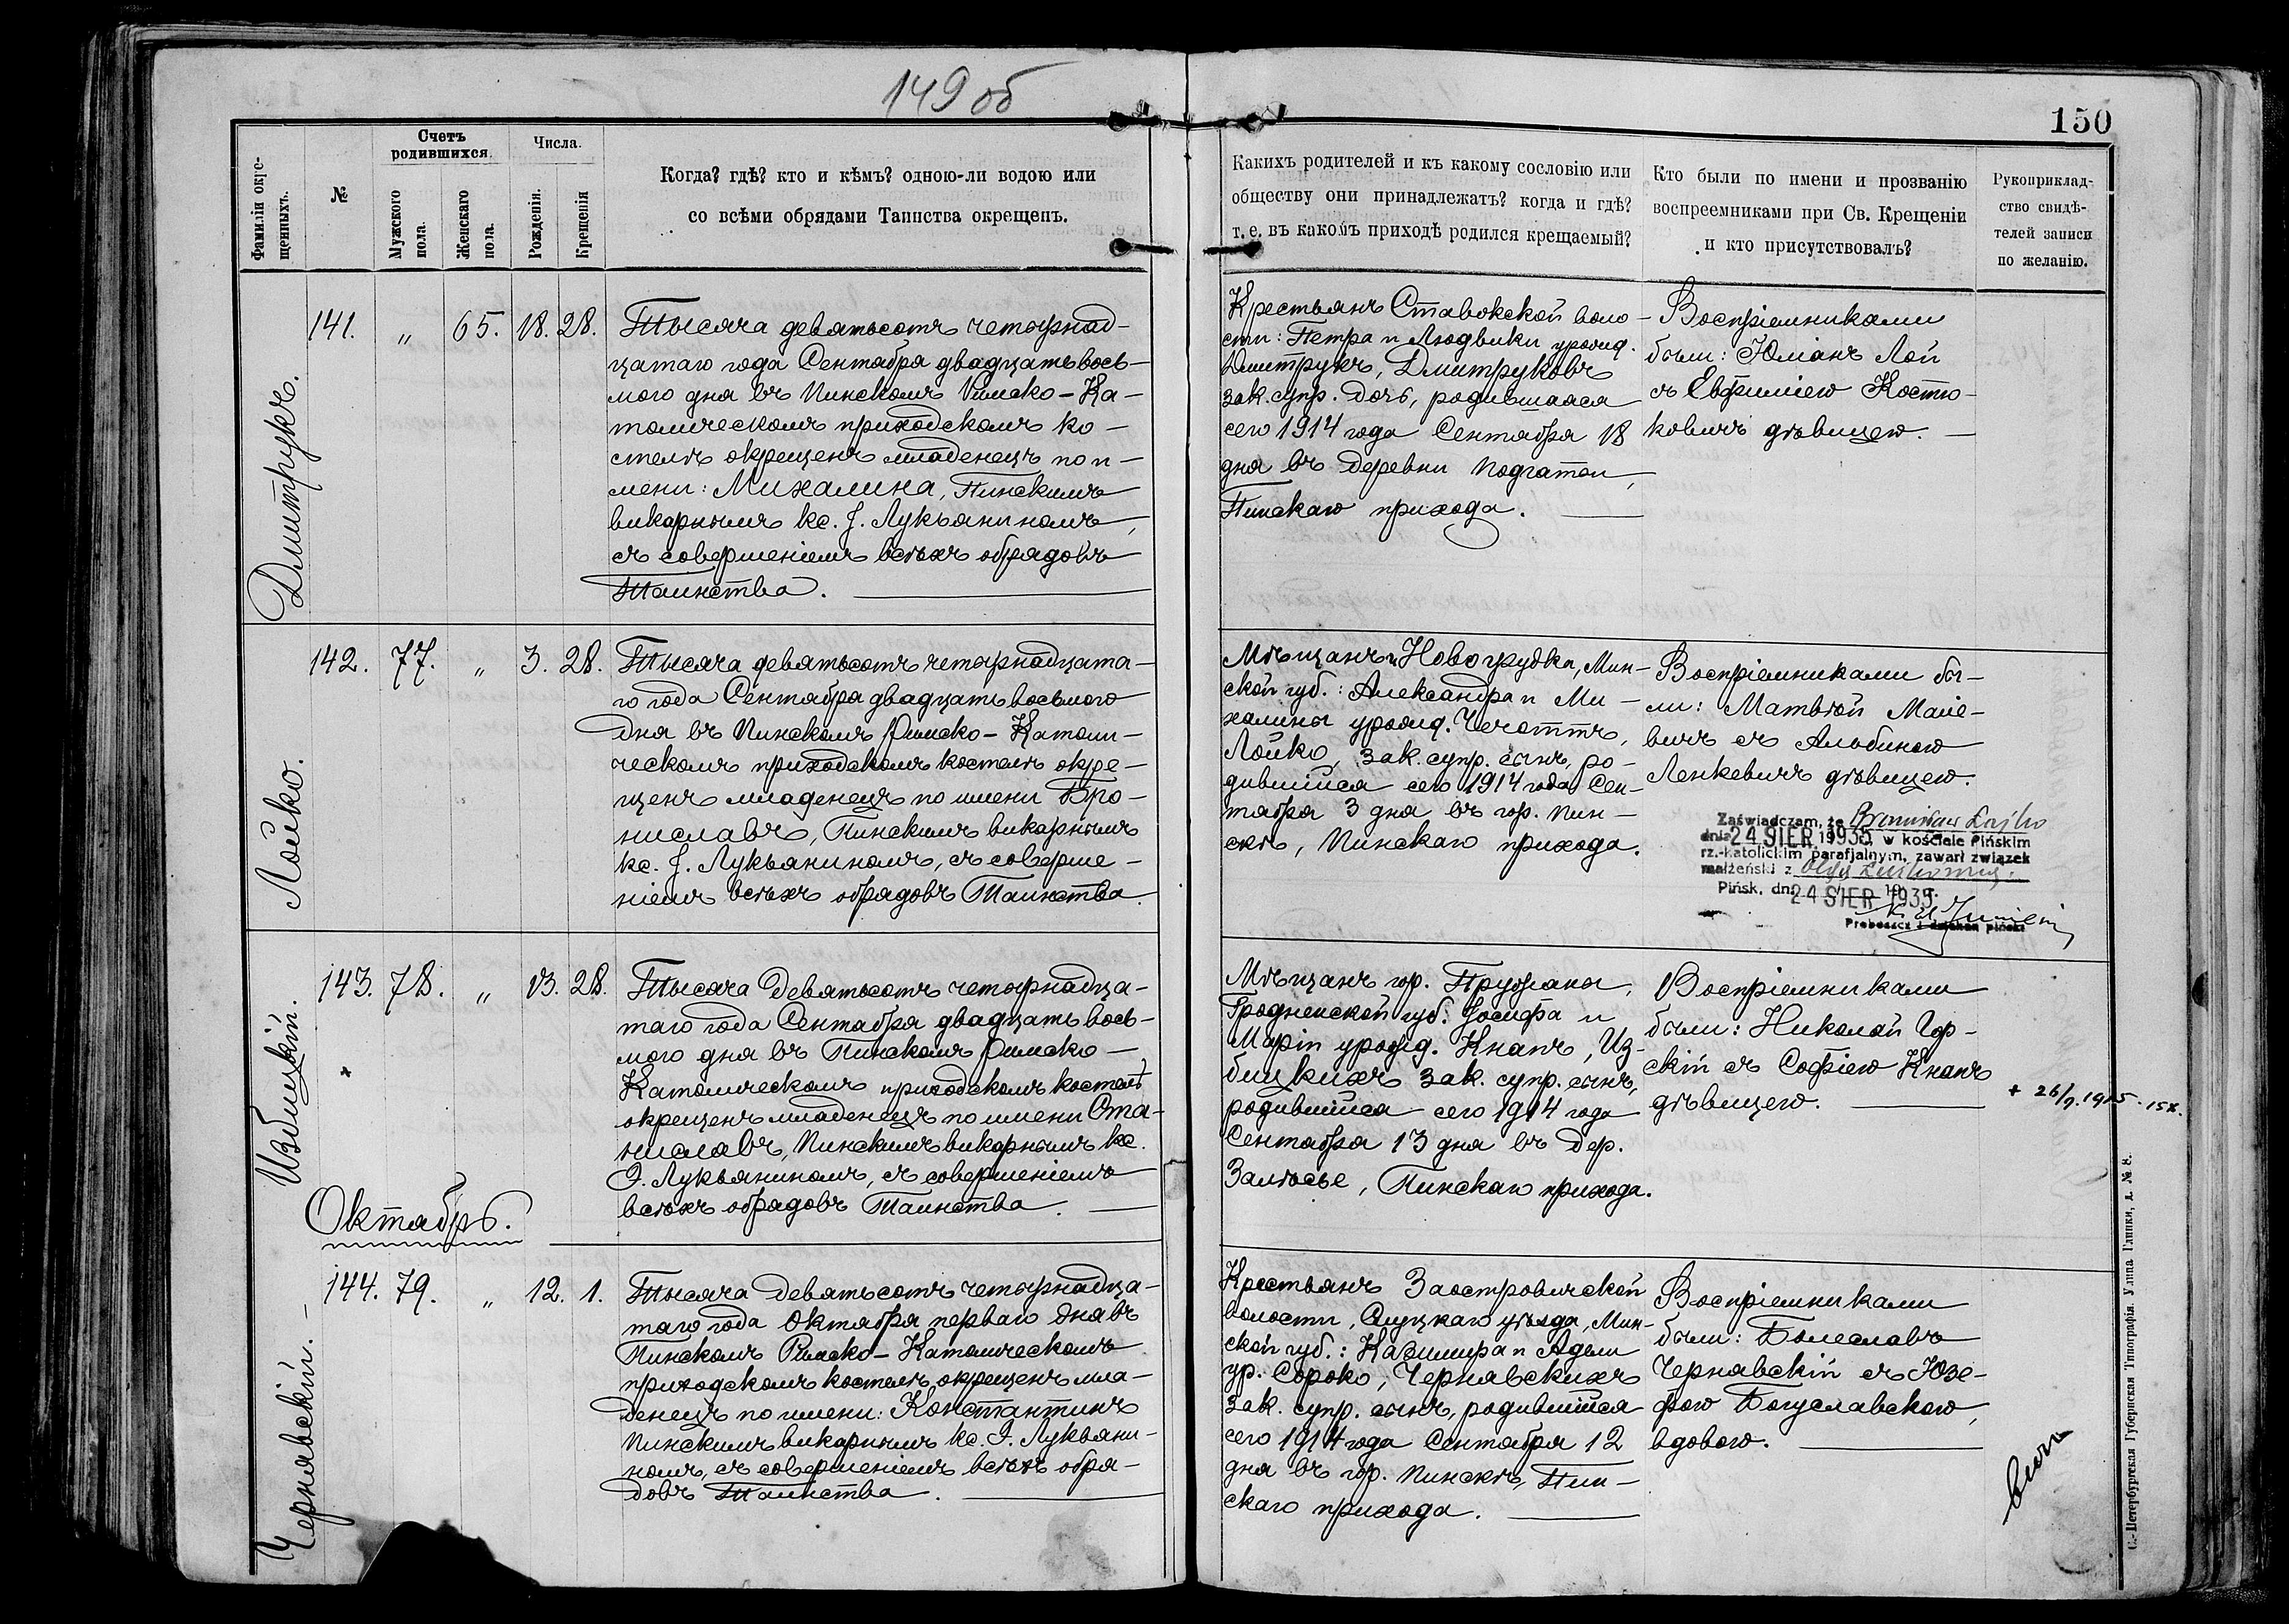 149 об
150
Фамиліи окре-
щенныхъ.
№
Счетъ
родившихся.
Мужского
пола.
Женскаго
пола.
Числа.
Рожденія.
Крещенія
Когда? гдѣ? кто и кѣмъ? одною-ли водою или
со всѣми обрядами Таинства окрещенъ.
Какихъ родителей и къ какому сословію или
обществу они принадлежатъ? когда и гдѣ?
т. е. въ какомъ приходѣ родился крещаемый?
Кто были по имени и прозванію
воспреемниками при Св. Крещеніи
и кто присутствовалъ?
Рукоприклад-
ство свидѣ-
телей записи
по желанію.
Дмитрукъ.
141. „ 65. 18. 28.
Тысяча девятьсотъ четырнад-
цатаго года Сентября двадцать вось-
мого дня въ Пинскомъ Римско-Ка-
толическомъ приходскомъ ко-
стелѣ окрещенъ младенецъ по и-
мени: Михалина, Пинскимъ
викарнымъ кс. J. Лукьяниномъ,
съ совершеніемъ всѣхъ обрядовъ
Таинства.
Крестьянъ Ставокской воло-
сти: Петра и Людвики урожд.
Дмитрукъ, Дмитруковъ
зак. супр. дочь, родившаяся
сего 1914 года Сентября 18
дня въ деревни Подгатьи,
Пинскаго прихода.
Воспріемниками
были: Юліанъ Лой
съ Евфиміею Костю-
ковичъ дѣвицею.
Лойко.
142. 77. „ 3. 28.
Тысяча девятьсотъ четырнадцата-
го года Сентября двадцать восьмого
дня въ Пинскомъ Римско-Католи-
ческомъ приходскомъ костелѣ окре-
щенъ младенецъ по имени Бро-
ниславъ, Пинскимъ викарнымъ
кс. J. Лукьяниномъ, съ соверше-
ніемъ всѣхъ обрядовъ Таинства.
Мѣщанъ Новогрудка, Мин-
ской губ.: Александра и Ми-
халины урожд. Чечоттъ,
Лойко, зак. супр. сынъ, ро-
дившійся сего 1914 года Сен-
тября 3 дня, въ гор. Пин-
скѣ, Пинскаго прихода.
Воспріемниками бы-
ли: Матвѣй Маце-
вичъ съ Альбиною
Ленкевичъ дѣвицею.
Zaświadczam, że Bronisław Łojko
dnia 24 SIER 1935 w kościele Pińskim
rz.-katolickim parafjalnym, zawarł związek
małżeński z Olgą
Pińsk, dn. 24 SIER 1935
Proboszcz i dziekan piński
Избицкій.
143. 78. „ 13. 28.
Тысяча девятьсотъ четырнадца-
таго года Сентября двадцать вось-
мого дня въ Пинскомъ Римско-
Католическомъ приходскомъ костелѣ
окрещенъ младенецъ по имени Ста-
ниславъ, Пинскимъ викарнымъ кс.
J. Лукьяниномъ, съ совершеніемъ
всѣхъ обрядовъ Таинства.
Мѣщанъ гор. Пружаны,
Гродненской губ. Іосифа и
Маріи урожд. Кнапъ, Из-
бицкихъ зак. супр. сынъ,
родившійся сего 1914 года
Сентября 13 дня въ дер.
Залѣсье, Пинскаго прихода.
Воспріемниками
были: Николай Гор-
скій съ Софіею Кнапъ
дѣвицею.
+ 26/9.1915.
Октябрь.
Чернявскій.
144. 79. „ 12. 1.
Тысяча девятьсотъ четырнадца-
таго года Октября перваго дня въ
Пинскомъ Римско-Католическомъ
приходскомъ костелѣ окрещенъ мла-
денецъ по имени: Константинъ
Пинскимъ викарнымъ кс. J. Лукьяни-
номъ, съ совершеніемъ всѣхъ обря-
довъ Таинства.
Крестьянъ Заостровичской
волости, Слуцкаго уѣзда, Мин-
ской губ.: Казимира и Адели
ур. Сороко, Чернявскихъ
зак. супр. сынъ, родившійся
сего 1914 года Сентября 12
дня въ гор. Пинскѣ, Пин-
скаго прихода.
Воспріемниками
были: Болеславъ
Чернявскій съ Юзе-
фою Богуславскою,
вдовою.
С.-Петербургская Губернская Типографія. Улица Глинки, д. № 8.